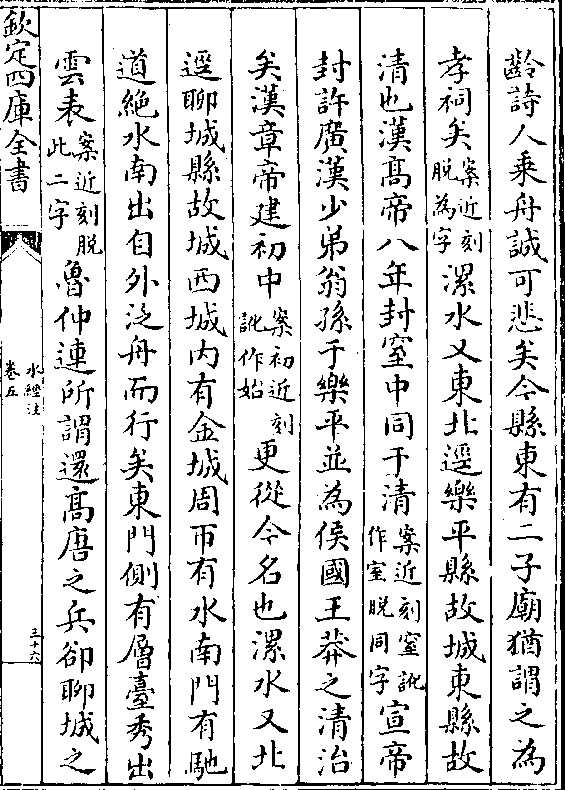 齡詩人乘舟誠可悲矣今縣東有二子廟猶謂之為
孝祠矣案近刻脱為字漯水又東北逕樂平縣故城東縣故
清也漢髙帝八年封室中同于清案近刻室訛作室脱同字宣帝
封許廣漢少弟翁孫于樂平並為侯國王莽之清治
矣漢章帝建初中案初近刻訛作始更從今名也漯水又北
逕聊城縣故城西城内有金城周帀有水南門有馳
道絶水南出自外泛舟而行矣東門側有層臺秀出
雲表案近刻脱此二字魯仲連所謂還髙唐之兵卻聊城之
欽定四庫全書
水經注
卷五
三十六